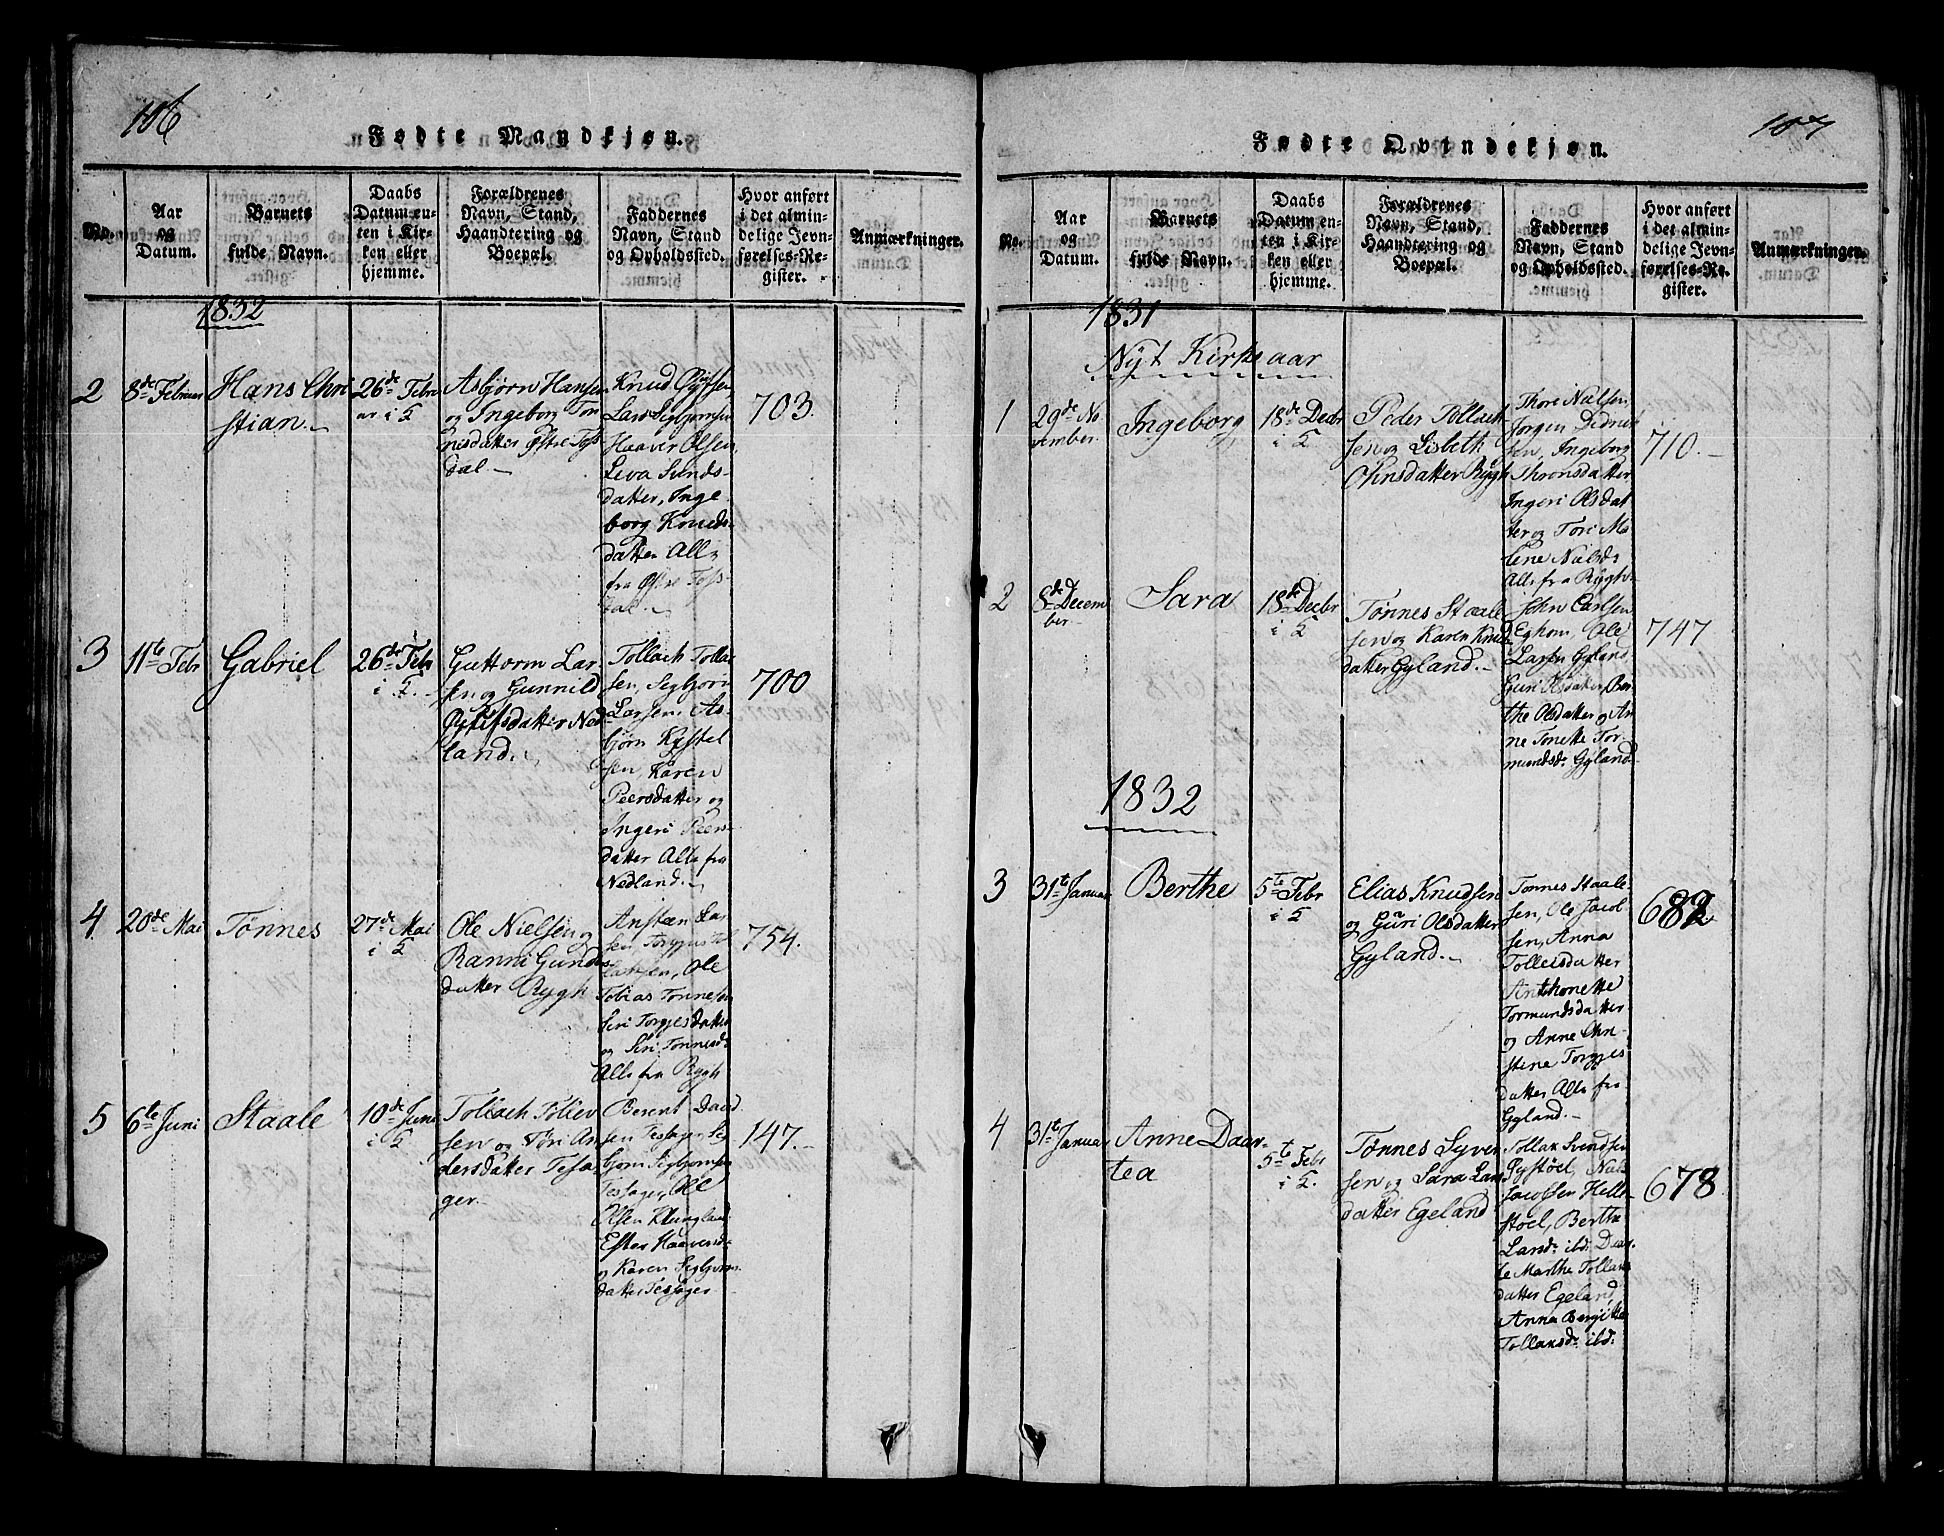 106
Fødte Mandkjøn.
No.
Aar
og
Datum.
Barnets
fulde Navn.
Daabs
Datum en-
ten i Kir-
ken eller
hjemme.
Forældrenes
Navn, Stand,
Haandtering og
Boepæl.
Faddernes
Navn, Stand
og Opholdssted.
Hvor anført
i det almin-
delige Jevn-
førelses-Re-
gister.
Anmærkninger.
1832
2
8de Februar
Hans Chri
stian.
26de Febru
ar i K
Asbjørn Hansen
og Ingeborg Tøn
nesdatter Østre Tøss
dal
Knud
Lars Segbjørnsen
Haaver Olsen,
Leva Svends-
datter, Inge
borg Knuds-
datter Alle
fra Østre Tøss-
dal
703.
3
11te Febr
Gabriel
26de Febr
i K.
Guttorm Lar
sen og Gunnild
datter Ned
land.
Tollach Tollac
sen, Segbjørn
Larsen, As-
bjørn
sen, Karen
Peersdatter og
Ingeri Peers
datter Alle fra
Nedland.
700
4
20de Mai
Tønnes
27de Mai
i K
Ole Nielsen og
Ranni Gunders
datter Rygh
Anstæn Lar
sen
Ole
Tobias Tønnesen
Siri Torgjesdatter
og Siri Tønnesd:
Alle fra Rygh
754.
5
6te Juni
Staale
10de Juni
i K
Tollach Tollev
sen og Tøri An
dersdatter Tesa
ger.
Berent David
sen Tesager, Seg
bjørn Segbjørnsen
Tessager, Ole
Olsen Klungland
Ester Haaversd:
og Karen Segbjørns
datter Tessager
147.
107
Fødte Qvindekjøn.
No.
Aar
og
Datum.
Barnets
fulde Navn.
Daabs
Datum en-
ten i Kir-
ken eller
hjemme.
Forældrenes
Navn, Stand,
Haandtering og
Boepæl.
Faddernes
Navn, Stand
og Opholdssted.
Hvor anført
i det almin-
delige Jevn-
førelses-Re-
gister.
Anmærkninger.
1831
Nyt Kirkeaar
1
29de No
vember
Ingeborg
18de Decbr
i K.
Peder Tollach
sen og Lisbeth
Ohnsdatter Rygh
Thore Nielsen,
Jørgen Didrik
sen, Ingeborg
Thronsdatter
Ingeri Olsdat
ter og Tøri Ma
lene Nielsd:
Alle fra Rygh.
710.
2
8de Decem
ber
Sara
18de Decbr
i K
Tønnes Staale
sen og Karen Knud
datter Gyland.
John Carlsen
Eghom, Ole
Larsen Gyland
Guri Olsdatter, Ber
the Olsdatter og An
ne Tonette Tor-
mundsd: Gyland
747
1832
3
31te Januar
Berthe
5te Febr
i K
Elias Knudsen
og Guri Olsdatter
Gyland.
Tønnes Staale-
sen, Ole Jacob
sen, Anna
Tolleisdatter
Anthonette
Tormundsdatter
og Anne Chri-
stine Torgjes
datter Alle fra
Gyland.
682
4
31te Januar
Anne Daar-
tea
5te Febr
i K.
Tønnes Syver
sen og Sara Lars
datter Egeland
Tollak Svendsen
Øystøel, Niels
Jacobsen Helle-
støel, Berthe
Larsd: ibd: Daar-
te Marthe Tollaks
datter Egeland
Anna Bergitte
Tollaksd: ibd:
678